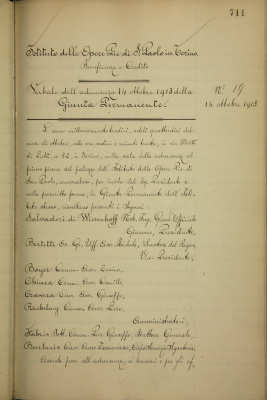 711
Istituto delle Opere Pie di S. Paolo in Torino
Beneficenza e Credito
Verbale dell'adunanza 14 ottobre 1913 della
Giunta Permanente.
N.° 19
14 ottobre 1913
L'anno millenovecentotredici, addì quattordici del
mese di ottobre, alle ore nove e minuti trenta, in via Monte
di Pietà, n. 32, in Torino, nella sala delle adunanze al
primo piano del palazzo dell'Istituto delle Opere Pie di
San Paolo, convocatasi, per invito del Sig. Presidente e
nelle prescritte forme, la Giunta Permanente dell'Isti-
tuto stesso, risultano presenti i Signori:
Salvadori di Wiesenhoff Nob. Ing. Grand'Ufficiale
Giacomo, Presidente,
Bertetti Avv. Gr. Uff. Michele, Senatore del Regno,
Vice Presidente,
Comm. Avv.
Chiesa Comm. Avv. Camillo,
Cravero Cav. Avv. Giuseppe,
Comm. Avv.
Amministratori,
Dott. Comm. Giuseppe, Direttore Generale,
Cav. Avv. Tommaso, Capo Servizio Segreteria
Assiste pure all'adunanza, ai termini e per gli ef-